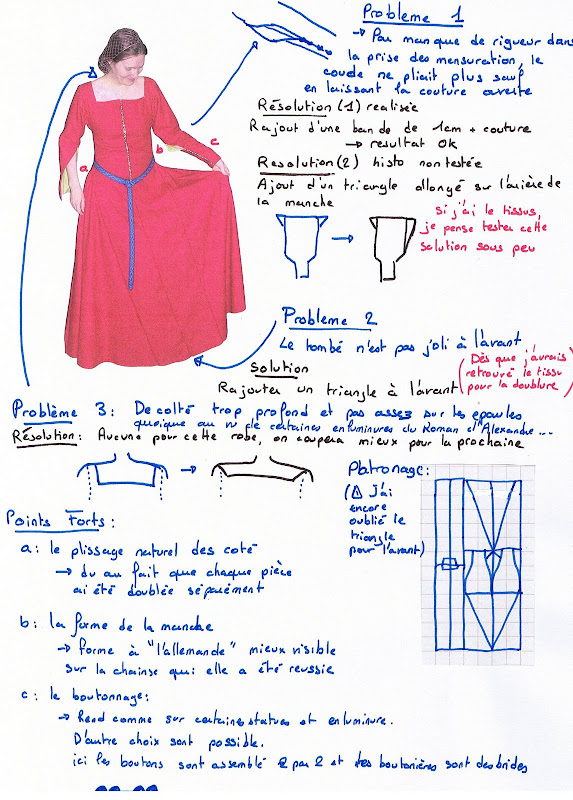 Problème 1
→ Par manque de rigueur dans
la prise des mensuration, le
coude ne pliait plus sauf
en laissant la couture ouverte
Résolution (1) realisée
Rajout d'une bande de 1cm + couture
→ resultat OK
Resolution (2) histo non testée
Ajout d'un triangle allongé sur l'arrière de
la manche
si j'ai le tissus,
je pense tester cette
solution sous peu
a
b
c
Problème 2
Le tombé n'est pas joli à l'avant
Solution
Rajouter un triangle à l'avant
(Dès que j'aurais
retrouvé le tissu
pour la doublure)
Problème 3: Decolté trop profond et pas assez sur les épaules
quoique au vu de certaines enluminures du Roman d'Alexandre...
Résolution: Aucune pour cette robe, on coupera mieux pour la prochaine
Patronage:
(⚠ J'ai
encore
oublié le
triangle
pour l'avant)
Points Forts:
a: le plissage naturel des coté
→ du au fait que chaque pièce
ai été doublée séparément
b: la forme de la manche
→ forme à "l'allemande" mieux visible
sur la chainse qui elle a été reussie
c: le boutonnage:
→ Rend comme sur certaines statues et enluminure.
D'autre choix sont possible.
ici les boutons sont assemblé 2 par 2 et les boutonières sont des brides